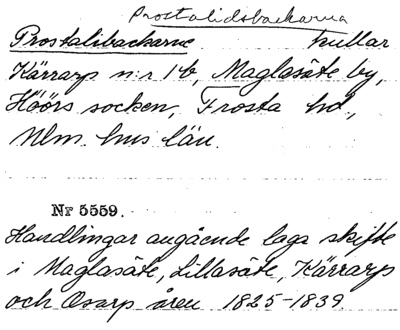 Prostalidsbackarna
Prostalibackarne kullar
Kärrarp n:r 1b, Maglasäte by,
Höörs socken, Frosta hd.,
Mlm. hus län.
Nr 5559.
Handlingar angående laga skifte
i Maglasäte, Lillasäte, Kärrarp
och Osarp åren 1825-1839